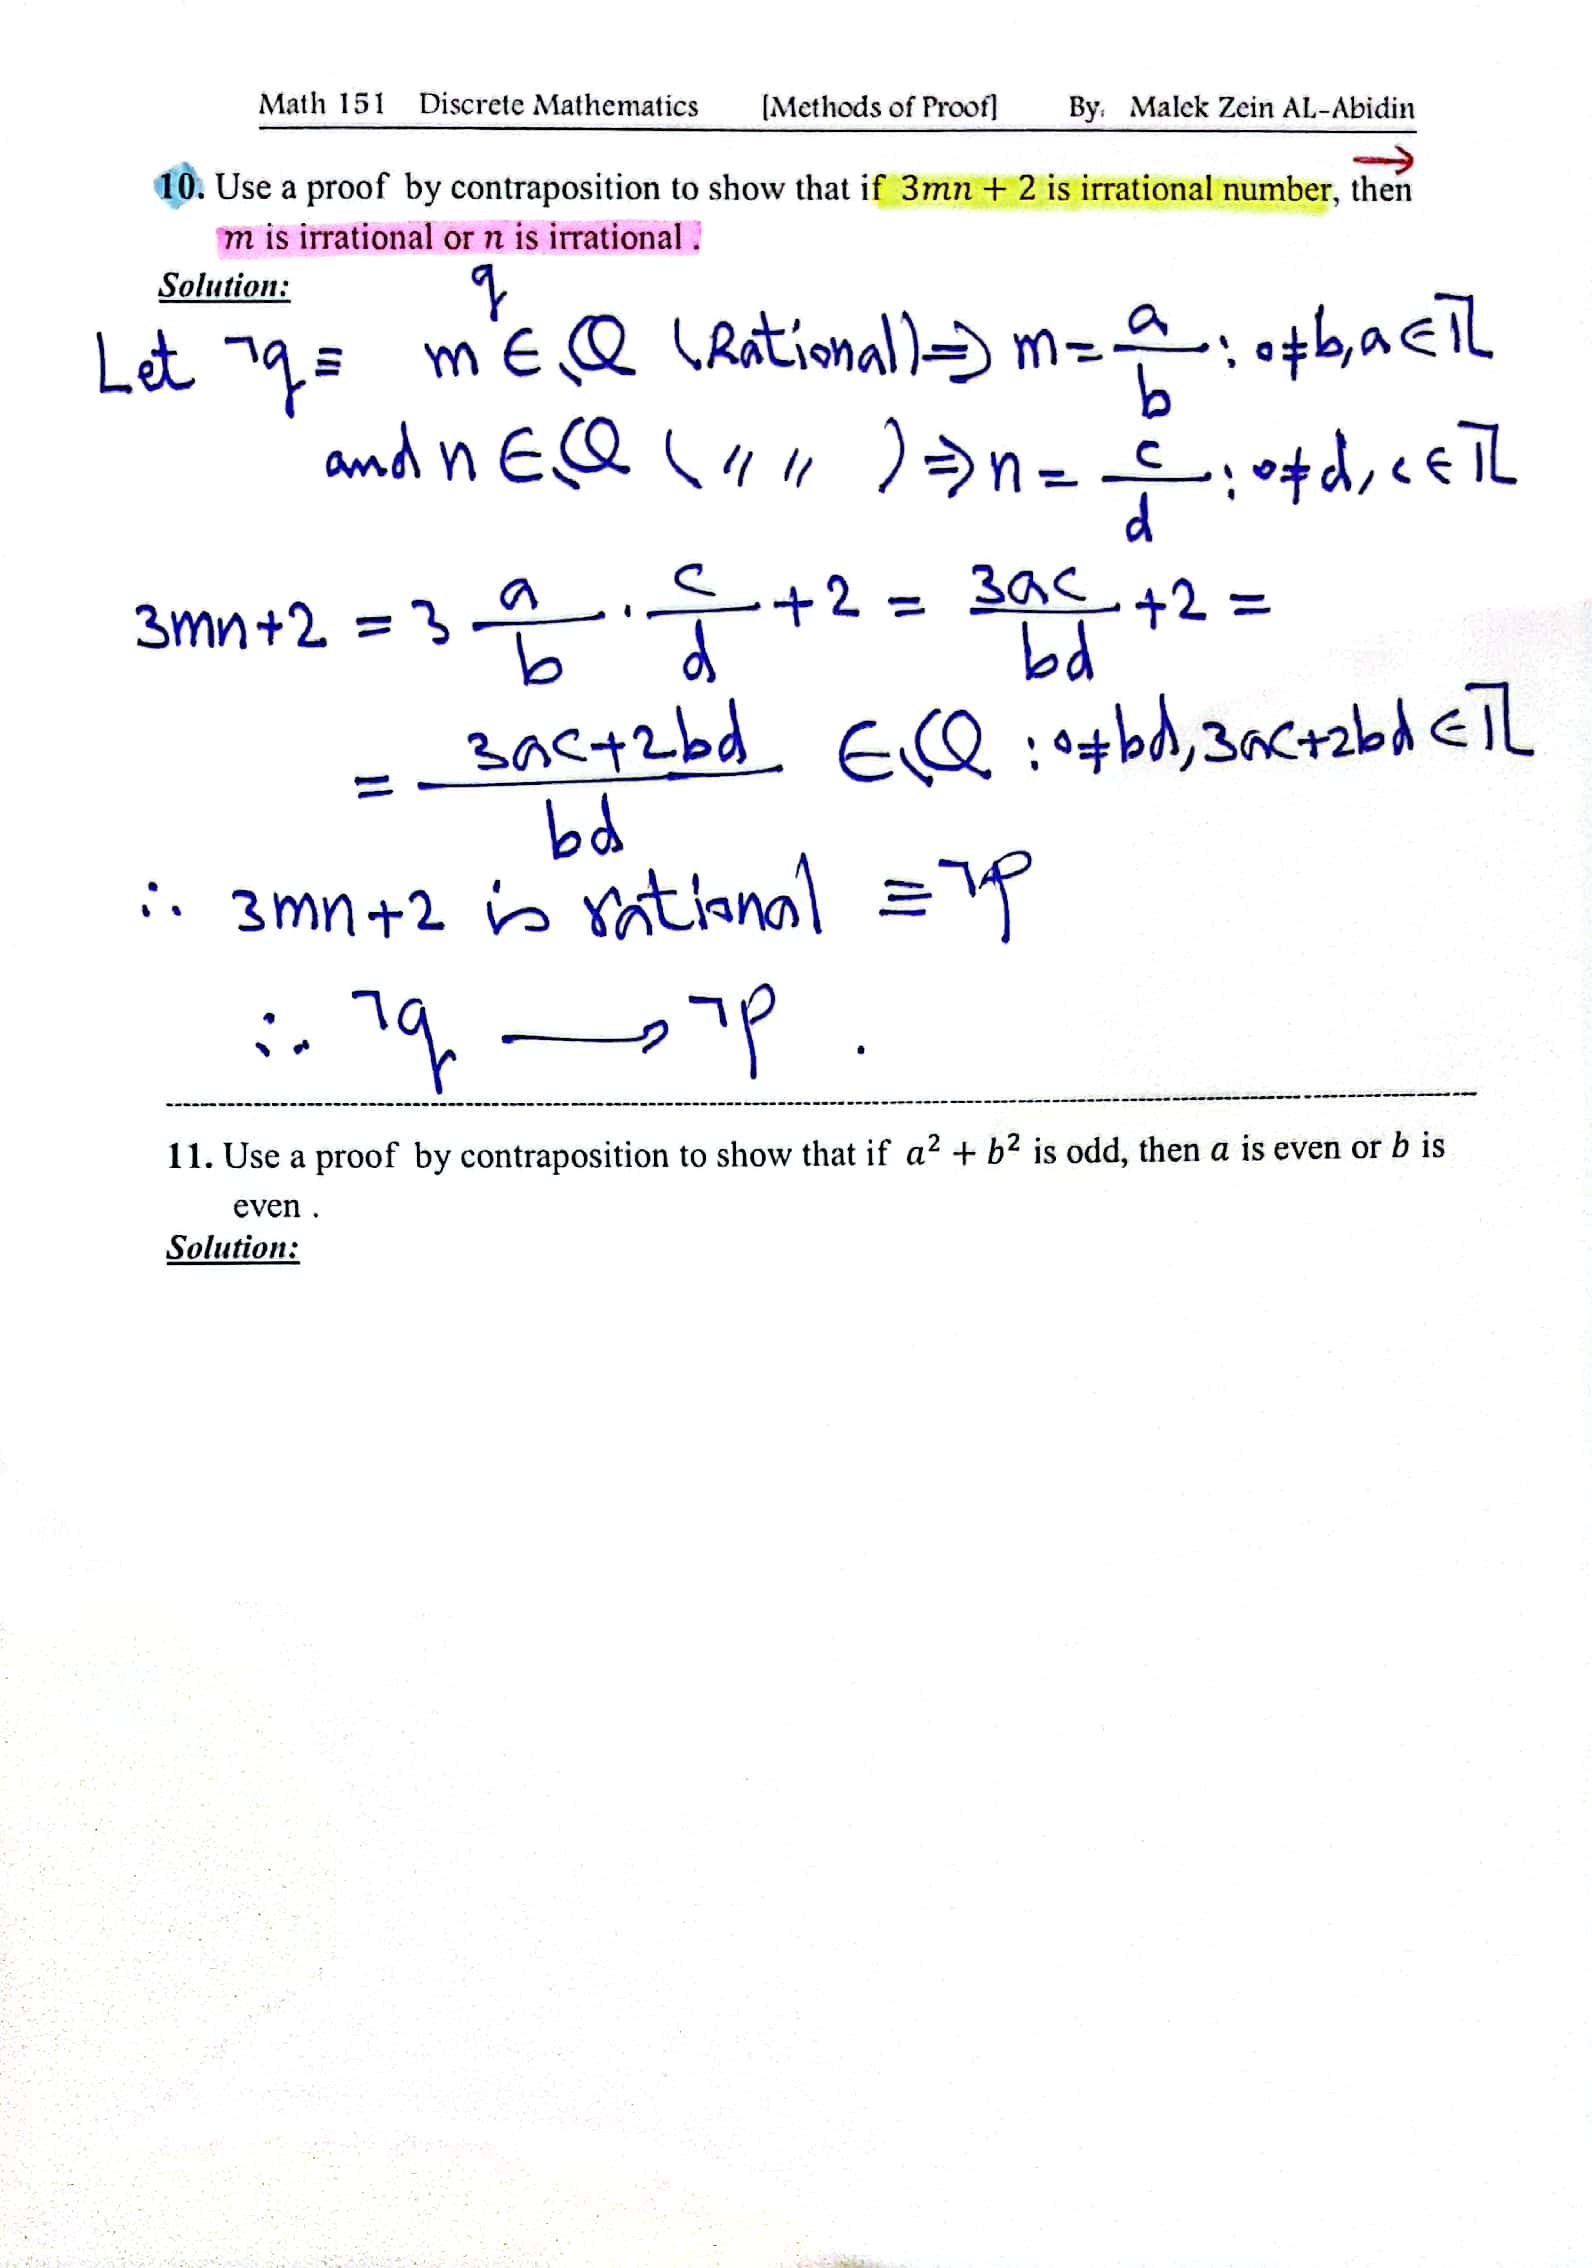 Math 151 Discrete Mathematics [Methods of Proof] By: Malek Zein AL-Abidin
10. Use a proof by contraposition to show that if 3mn + 2 is irrational number, then
m is irrational or n is irrational .
Solution:
q
Let ¬q ≡ m ∈ ℚ (Rational) ⇒ m = a/b : 0 ≠ b, a ∈ ℤ
and n ∈ ℚ ( 〃 〃 ) ⇒ n = c/d : 0 ≠ d, c ∈ ℤ
3mn+2 = 3 a/b · c/d + 2 = 3ac/bd + 2 =
= 3ac+2bd/bd ∈ ℚ : 0 ≠ bd, 3ac+2bd ∈ ℤ
∴ 3mn+2 is rational ≡ ¬p
∴ ¬q → ¬p .
11. Use a proof by contraposition to show that if a² + b² is odd, then a is even or b is
even .
Solution: